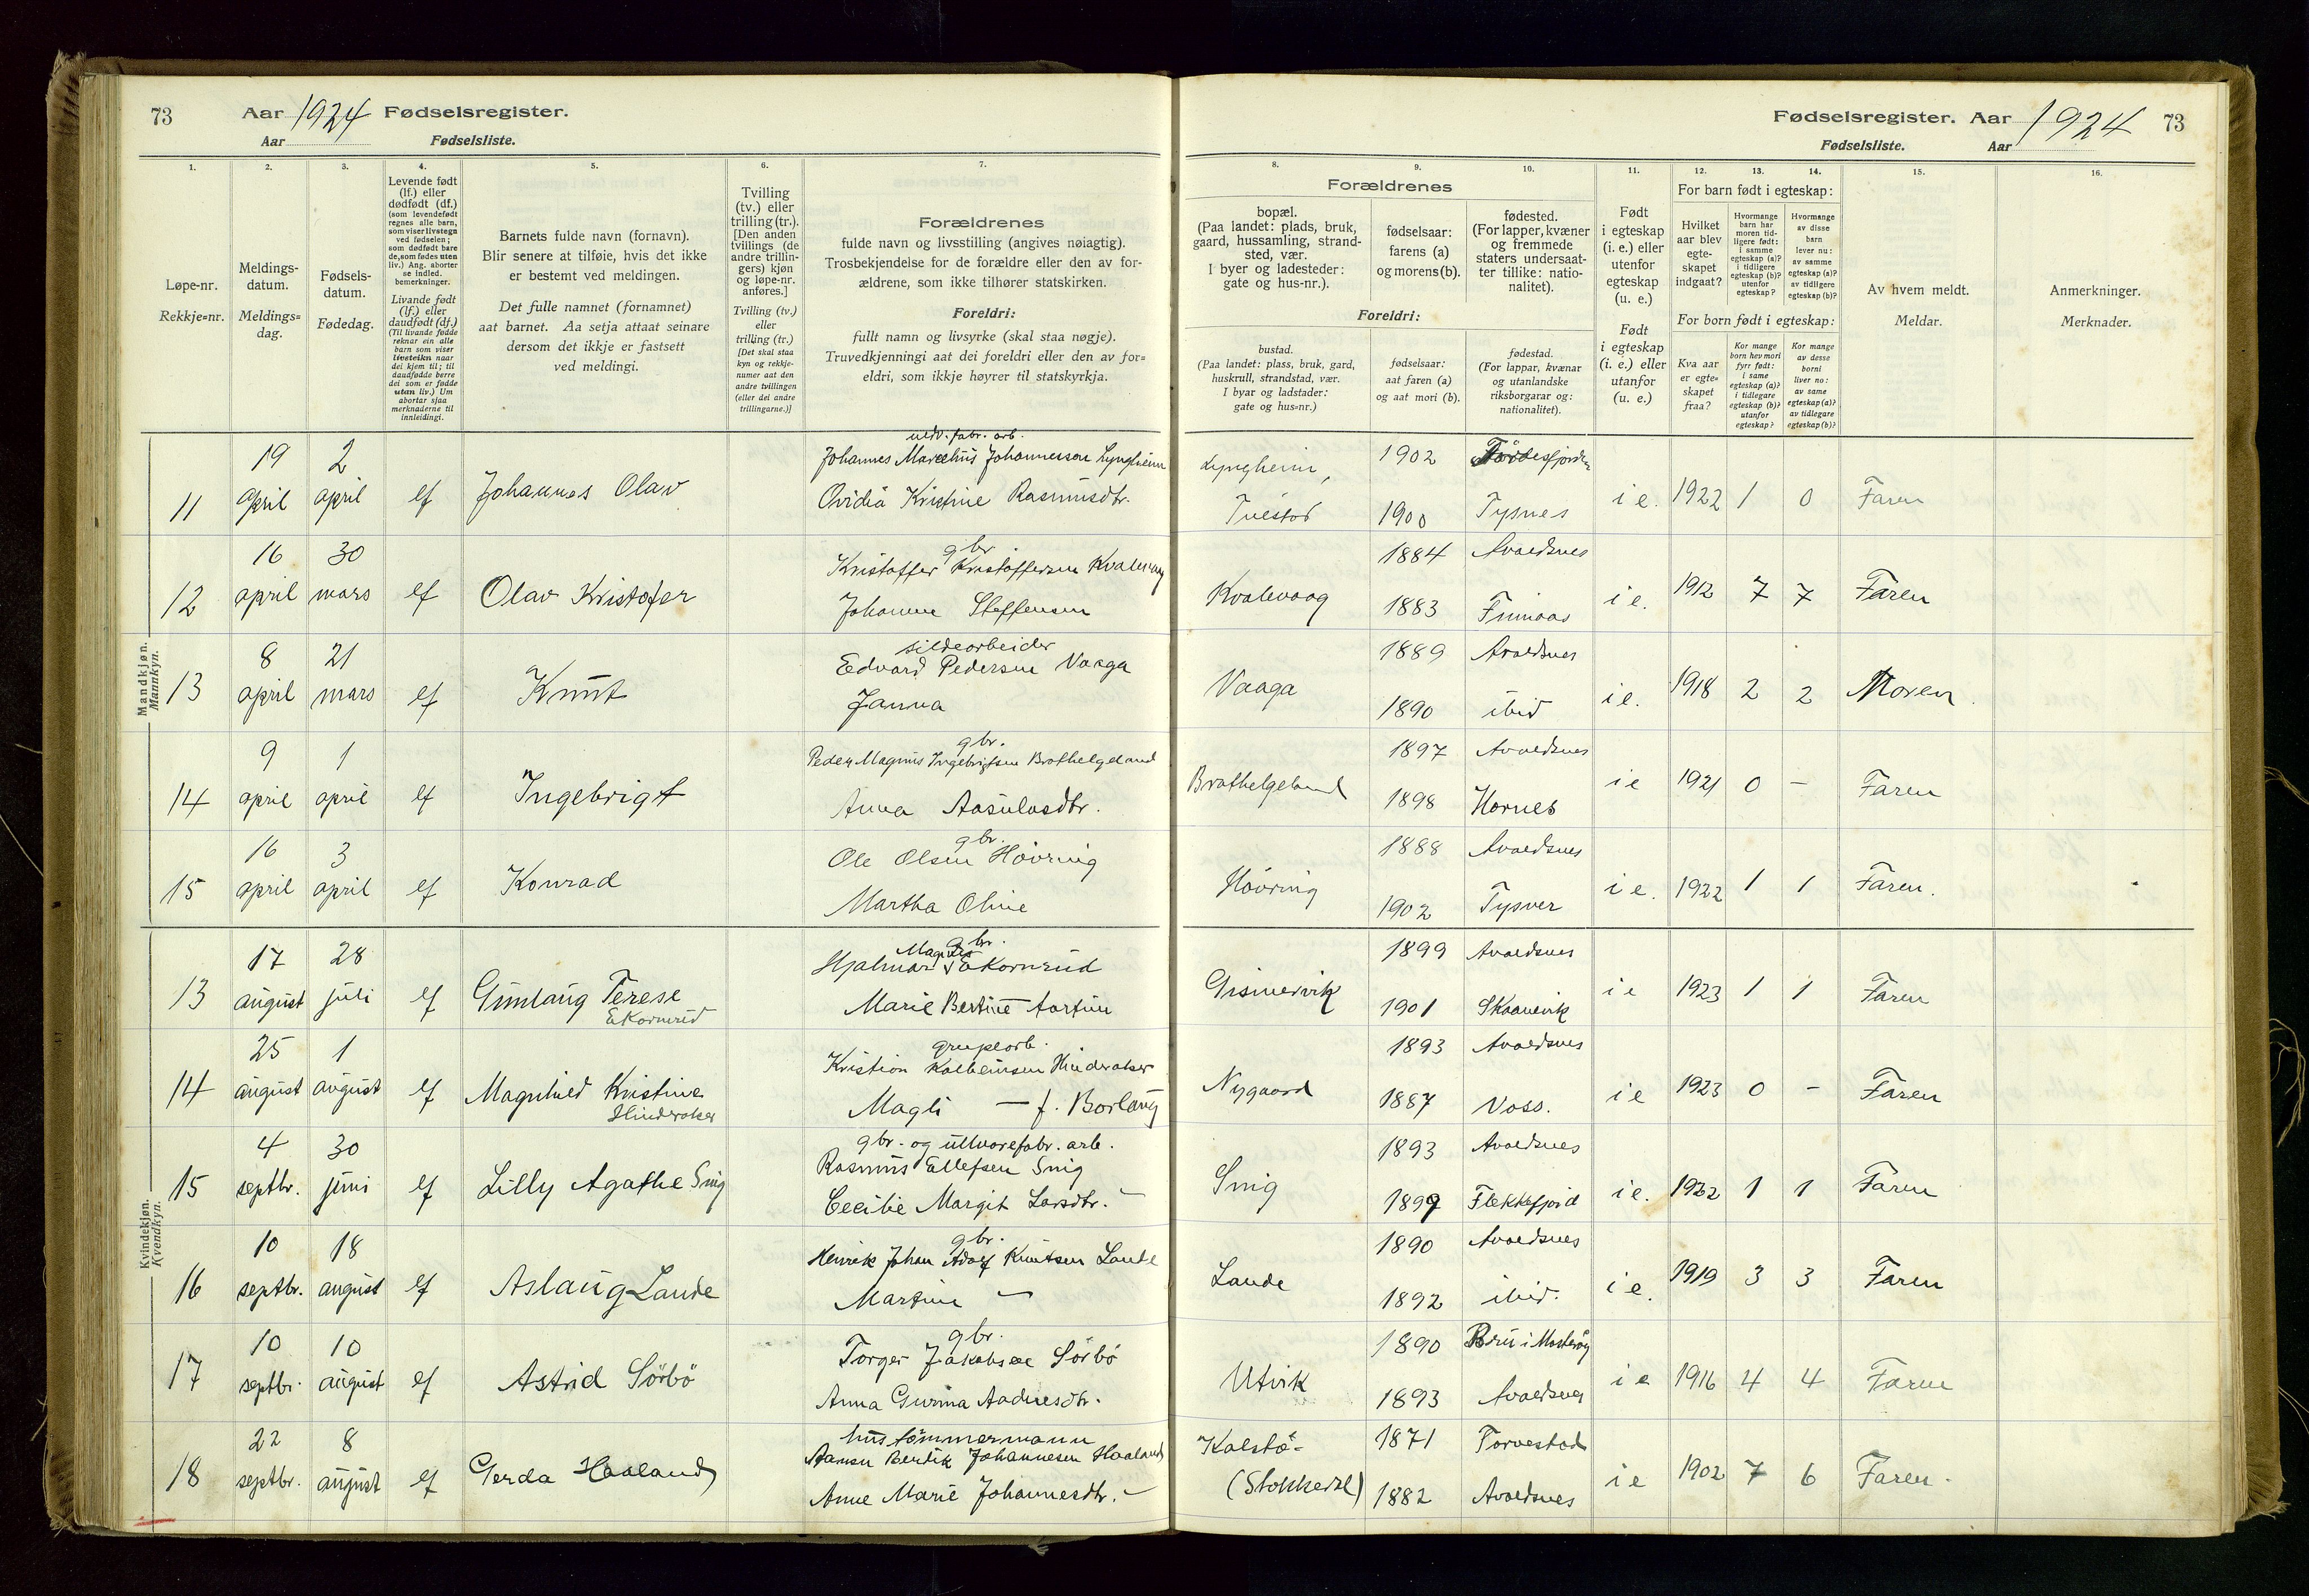 73 Aar 1924 Fødselsregister.
Aar Fødselsliste.
Fødselsregister. Aar 1924 73
Fødselsliste. Aar
1.
Løpe-nr.
Rekkje=nr.
2.
Meldings-
datum.
Meldings=
dag.
3.
Fødsels-
datum.
Fødedag.
4.
Levende født
(lf.) eller
dødfødt (df.)
(som levendefødt
regnes alle barn,
som viser livstegn
ved fødselen;
som dødfødt bare
de, som fødes uten
liv.) Ang. aborter
se indled.
bemerkninger.
Livande født
(lf.) eller
daudfødt (df.)
(Til livande fødde
reknar ein alle
barn som viser
livsteikn naar
dei kjem til; til
daudfødde berre
dei som er fødde
utan liv.) Um
abortar sjaa
merknaderne til
innleidingi.
5.
Barnets fulde navn (fornavn).
Blir senere at tilføie, hvis det ikke
er bestemt ved meldingen.
Det fulle namnet (fornamnet)
aat barnet. Aa setja attaat seinare
dersom det ikkje er fastsett
ved meldingi.
6.
Tvilling
(tv.) eller
trilling (tr.).
[Den anden
tvillings (de
andre trillin-
gers) kjøn
og løpe-nr.
anføres.]
Tvilling (tv.)
eller
trilling (tr.)
[Det skal staa
kyn og rekkje-
numer aat den
andre tvillingen
(eller dei andre
trillingarne.)]
7.
Forældrenes
fulde navn og livsstilling (angives nøiagtig).
Trosbekjendelse for de forældre eller den av for-
ældrene, som ikke tilhører statskirken.
Foreldri:
fullt namn og livsyrke (skal staa nøgje).
Truvedkjenningi aat dei foreldri eller den av for=
eldri, som ikkje høyrer til statskyrkja.
8.
Forældrenes
bopæl.
(Paa landet: plads, bruk,
gaard, hussamling, strand-
sted, vær.
I byer og ladesteder:
gate og hus-nr.).
Foreldri:
bustad.
(Paa landet: plass, bruk, gard,
huskrull, strandstad, vær.
I byar og ladstader:
gate og hus=nr.)
9.
fødselsaar:
farens (a)
og morens (b).
fødselsaar:
aat faren (a)
og aat mori (b).
10.
fødested.
(For lapper, kvæner
og fremmede
staters undersaat-
ter tillike: natio-
nalitet).
fødestad.
(For lappar, kvænar
og utanlandske
riksborgarar og:
nationalitet).
11.
Født
i egteskap
(i. e.) eller
utenfor
egteskap
(u. e.)
Født
i egteskap
(i. e.) eller
utanfor
(u. e.)
12. 13. 14.
For barn født i egteskap:
Hvilket
aar blev
egte-
skapet
indgaat?
Hvormange
barn har
moren tid-
ligere født:
i samme
egteskap (a)?
i tidligere
egteskap (b)?
utenfor
egteskap?
Hvormange
av disse
barn
lever nu:
av samme
egteskap (a)?
av tidligere
egteskap (b)?
For born født i egteskap:
Kva aar
er egte=
skapet
fraa?
Kor mange
born hev mori
fyrr født:
i same
egteskap (a)?
i tidlegare
egteskap (b)?
utanfor
egteskap?
Kor mange
av desse
borni
liver no:
av same
egteskap (a)?
av tidlegare
egteskap (b)?
15.
Av hvem meldt.
Meldar.
16.
Anmerkninger.
Merknader.
Mandkjøn.
Mannkyn.
11 19 april 2 april lf Johannes Olav
Johannes Johannessen Lyngheim
Ovidia Kristine Rasmusdtr.
Lyngheim, 1902
1900 Tysnes i e. 1922 1 0 Faren
12 16 april 30 mars lf Olav Kristofer
gbr
Kristoffer Kristoffersen Kvalevaag
Johanne Steffensen
Kvalevaag 1884 Avaldsnes
1883 Finnaas i e. 1912 7 7 Faren
13 8 april 21 mars lf Knut
sildearbeider
Edvard Pedersen Vaaga
Janna
Vaaga 1889 Avaldsnes
1890 ibid i e. 1918 2 2 Moren
14 9 april 1 april lf Ingebrigt
gbr.
Peder Magnus Ingebrigtsen Brathelgeland
Anna Aasulvsdtr.
Brathelgeland 1897 Avaldsnes
1898 Hornes i e 1921 0 - Faren
15 16 april 3 april lf Konrad
gbr.
Ole Olsen Hövring
Martha Oline
Hövring 1888 Avaldsnes
1902 Tysver i e. 1922 1 1 Faren.
Kvindekjøn.
Kvendkyn.
13 17 august 28 juli lf Gunlaug Terese
Ekornrud
gbr.
Hjalmar Ekornrud
Marie Bertine
Gismervik 1899 Avaldsnes
1901 Skaanevik i e 1923 1 1 Faren
14 25 august 1 august lf Magnhild Kristine
Hinderaker
grubearb.
Kristian Kolbeinsen Hinderaker
Magli — f. Borlaug
Nygaard 1893 Avaldsnes
1887 Voss. i e 1923 0 - Faren
15 4 septbr. 30 juni lf Lilly Agathe Snig
gbr. og ullvarefabr. arb.
Rasmus Ellefsen Snig
Cecilie Margit Larsdtr. —
Snig 1893 Avaldsnes
1899 Flekkefjord i e. 1922 1 1 Faren
16 10 septbr. 18 august lf Aslaug Lande
gbr.
Henrik Johan Adolf Knutsen Lande
Martine —
Lande 1890 Avaldsnes
1892 ibid. i e. 1919 3 3 Faren
17 10 septbr. 10 august lf Astrid Sörbö
gbr.
Torger Jakobsen Sörbö
Anna Gurina Aadnesdtr.
Utvik 1890 Bru i Mosteröy
1893 Avaldsnes i e 1916 4 4 Faren
18 22 septbr. 8 august lf Gerda Haaland
hustömmermann
Aamen Berdik Johannesen Haaland
Anne Marie Johannesdtr. —
Kalstö-
1871 Torvestad
1882 Avaldsnes i e 1902 7 6 Faren.